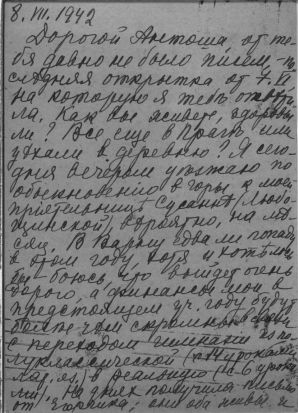 8.VII.1942
Дорогой Антоша, от те-
бя давно не было писем - по-
следняя открытка от 7.VI
на которую я тебе ответи-
ла. Как вы живете, здоровы
ли? Все еще в Праге или
уехали в деревню? Я сего-
дня вечером уезжаю по
обыкновению в горы к моей
приятельнице Сусанне /Любо-
щинской/, вероятно, на ме-
сяц. В Варну едва ли попаду
в этом году, хотя и хотело
бы - боюсь, что выйдет очень
дорого, а финансы мои в
предстоящем уч. году будут
более чем скромными в связи
с переходом гимназии из по-
луклассической
в реальную (по 6 уроков
На днях получила письмо
от они оба живы и